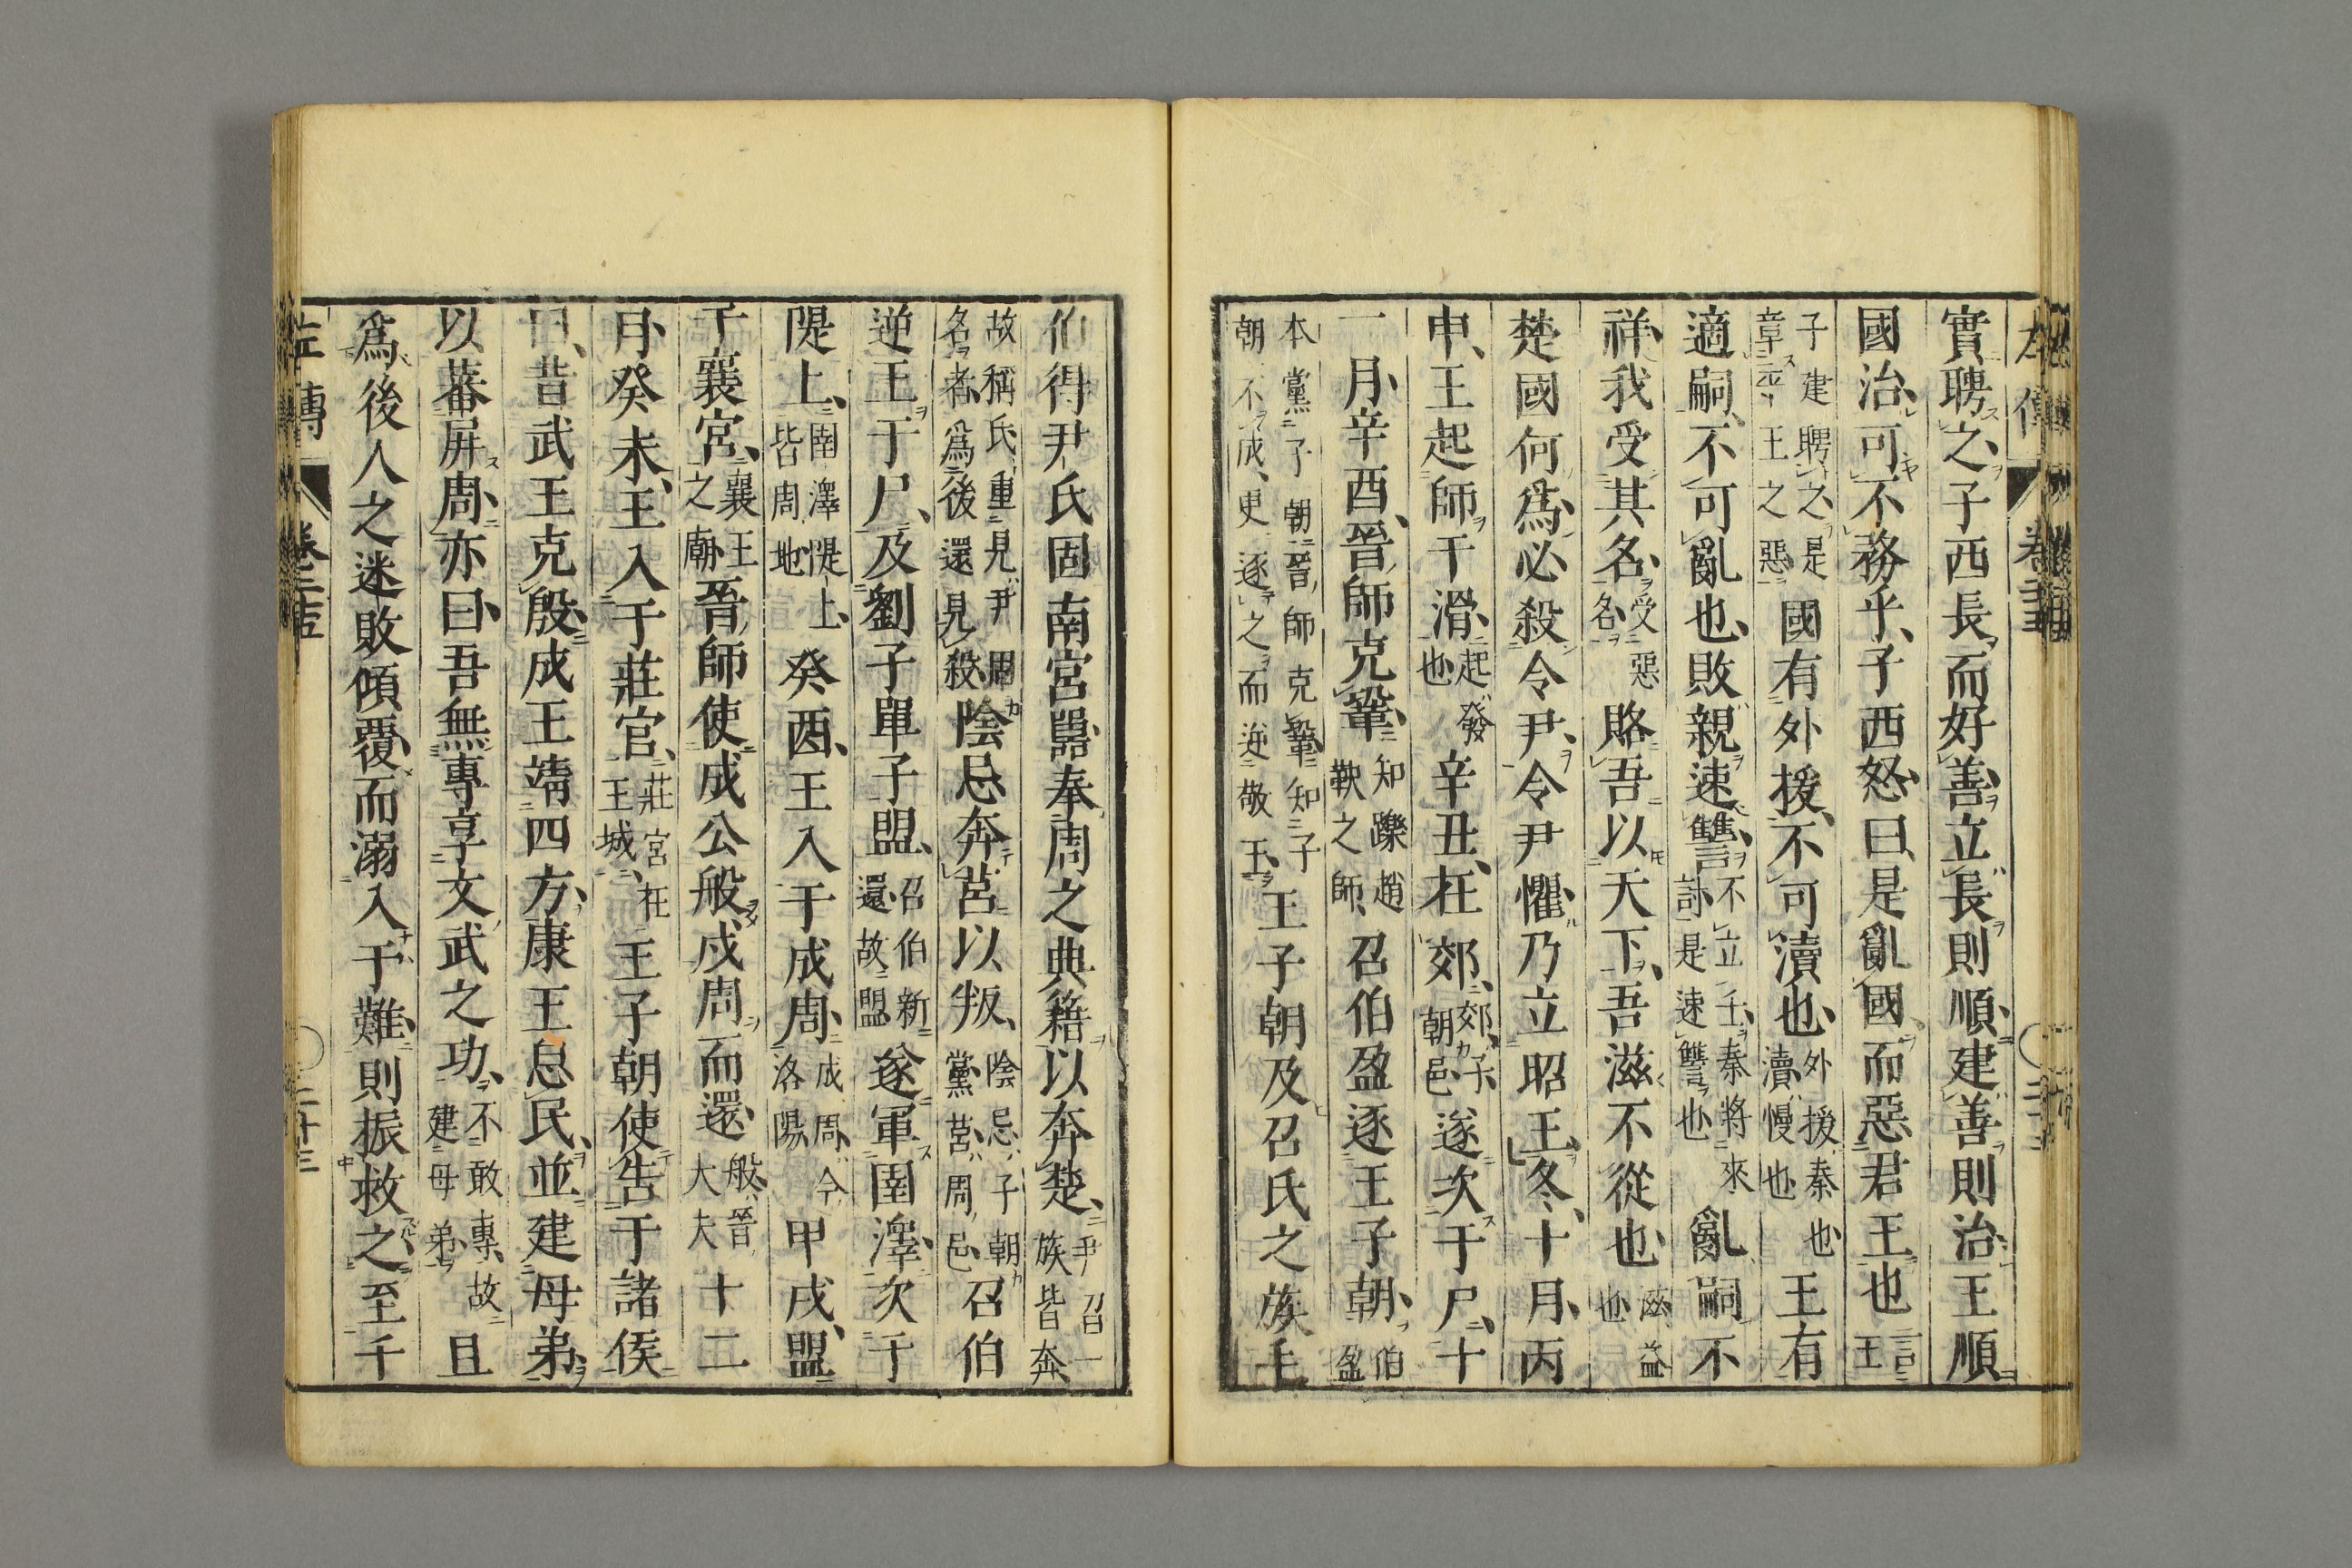 實聘之子西長而好善立長則順建善則治王順
國治可不務乎子西怒曰是亂國而惡君王也言王
子建聘之是章平王之惡國有外援不可瀆也外援秦也瀆慢也王有
適嗣不可亂也敗親速讐不立壬秦將來討是速讐也亂嗣不
祥我受其名受惡名賂吾以天下吾滋不從也滋益也
楚國何爲必殺令尹令尹懼乃立昭王冬十月丙
申王起師于滑起發也辛丑在郊郊子朝邑遂次于尸十
一月辛酉晉師克鞏知躒趙鞅之師召伯盈逐王子朝伯盈
本黨子朝晉師克鞏知子朝不成更逐之而逆敬王王子朝及召氏之族毛
伯得尹氏固南宮嚚奉周之典籍以奔楚尹召二族皆奔
故稱氏重見尹固名者爲後還見殺陰忌奔莒以叛陰忌子朝黨莒周邑召伯
逆王于尸及劉子單子盟召伯新還故盟遂軍圉澤次于
隄上圉澤隄上皆周地癸酉王入于成周成周今洛陽甲戌盟
于襄宮襄王之廟晉師使成公般戍周而還般晉大夫十二
月癸未王入于莊宮莊宮在王城王子朝使告于諸侯
曰昔武王克殷成王靖四方康王息民並建母弟
以蕃屏周亦曰吾無專享文武之功不敢專故建母弟且
爲後人之迷敗傾覆而溺入于難則振救之至于
左傳 卷二十五 二十三